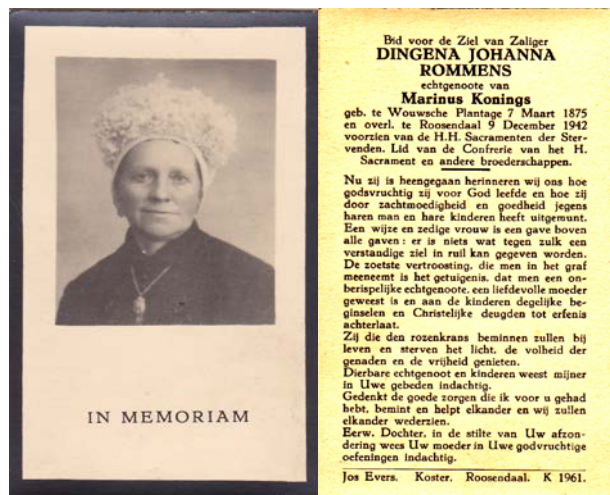 IN MEMORIAM
Bid voor de Ziel van Zaliger
DINGENA JOHANNA
ROMMENS
echtgenoote van
Marinus Konings
geb. te Wouwsche Plantage 7 Maart 1875
en overl. te Roosendaal 9 December 1942
voorzien van de H.H. Sacramenten der Ster-
venden. Lid van de Confrerie van het H.
Sacrament en andere broederschappen.
Nu zij is heengegaan herinneren wij ons hoe
godsvruchtig zij voor God leefde en hoe zij
door zachtmoedigheid en goedheid jegens
haren man en hare kinderen heeft uitgemunt.
Een wijze en zedige vrouw is een gave boven
alle gaven: er is niets wat tegen zulk een
verstandige ziel in ruil kan gegeven worden.
De zoetste vertroosting, die men in het graf
meeneemt is het getuigenis, dat men een on-
berispelijke echtgenoote, een liefdevolle moeder
geweest is en aan de kinderen degelijke be-
ginselen en Christelijke deugden tot erfenis
achterlaat.
Zij die den rozenkrans beminnen zullen bij
leven en sterven het licht, de volheid der
genaden en de vrijheid genieten.
Dierbare echtgenoot en kinderen weest mijner
in Uwe gebeden indachtig.
Gedenkt de goede zorgen die ik voor u gehad
hebt, bemint en helpt elkander en wij zullen
elkander wederzien.
Eerw. Dochter, in de stilte van Uw afzon-
dering wees Uw moeder in Uwe godvruchtige
oefeningen indachtig.
Jos Evers. Koster. Roosendaal. K 1961.